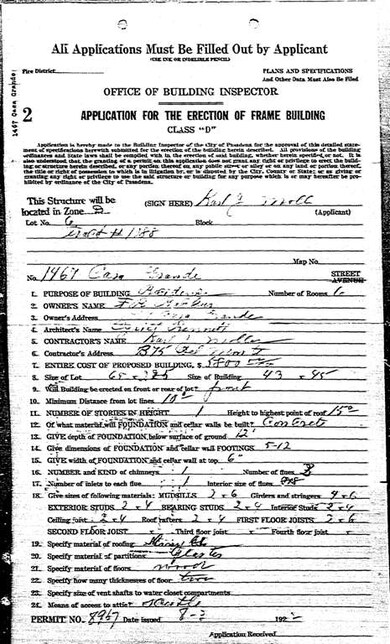 All Applications Must Be Filled Out by Applicant
(USE INK OR INDELIBLE PENCIL)
Fire District
PLANS AND SPECIFICATIONS
And Other Data Must Also Be Filed
1467 Casa Grande
OFFICE OF BUILDING INSPECTOR
2
APPLICATION FOR THE ERECTION OF FRAME BUILDING
CLASS "D"
Application is hereby made to the Building Inspector of the City of Pasadena for the approval of this detailed
statement of specifications herewith submitted for the erection of the building herein described. All provisions of the building
ordinances and State laws shall be complied with in the erection of said building, whether herein specified, or not. It is
also understood that the granting of a permit on this application does not grant any right or privilege to erect the building
or structure herein described, or any portion thereof on any public street or alley or on any land or portion thereof,
the title or right of possession to which is in litigation
This Structure will be
located in Zone B
(SIGN HERE) Karl
(Applicant)
Lot No. 6
Block
Tract # 1388
Map No.
No. 1467 Casa Grande
STREET
AVENUE
1. PURPOSE OF BUILDING Residence Number of Rooms 6
2. OWNER'S NAME
3. Owner's Address Grande
4. Architect's Name Bennett
5. CONTRACTOR'S NAME Karl
6. Contractor's Address 875
7. ENTIRE COST OF PROPOSED BUILDING, $ 3800
8. Size of Lot 65 x Size of Building 43 x 45
9. Will Building be erected on front or rear of lot? front
10. Minimum Distance from lot lines 10
11. NUMBER OF STORIES IN HEIGHT 1 Height to highest point of roof 15
12. Of what material will FOUNDATION and cellar walls be built? Concrete
13. GIVE depth of FOUNDATION below surface of ground 12"
14. Give dimensions of FOUNDATION and cellar wall FOOTINGS 5-12
15. GIVE width of FOUNDATION and cellar wall at top 6"
16. NUMBER AND KIND of chimneys 1 Number of flues
17. Number of inlets to each flue 1 Interior size of flues
18. Give sizes of following materials: MUDSILLS 2 x 6 Girders and stringers 4 x 6
EXTERIOR STUDS 2 x 4 BEARING STUDS 2 x 4 Interior Studs 2 x 4
Ceiling joist 2 x 4 Roof rafters 2 x 4 FIRST FLOOR JOISTS 2 x 6
SECOND FLOOR JOIST x Third floor joist x Fourth floor joist x
19. Specify material of roofing
20. Specify material of partitions Plaster
21. Specify material of floors wood
22. Specify how many thicknesses of floor two
23. Specify size of vent shafts to water closet compartments
24. Means of access to attic scuttle
PERMIT NO. 8967 Date issued 8-3 192
Application Received